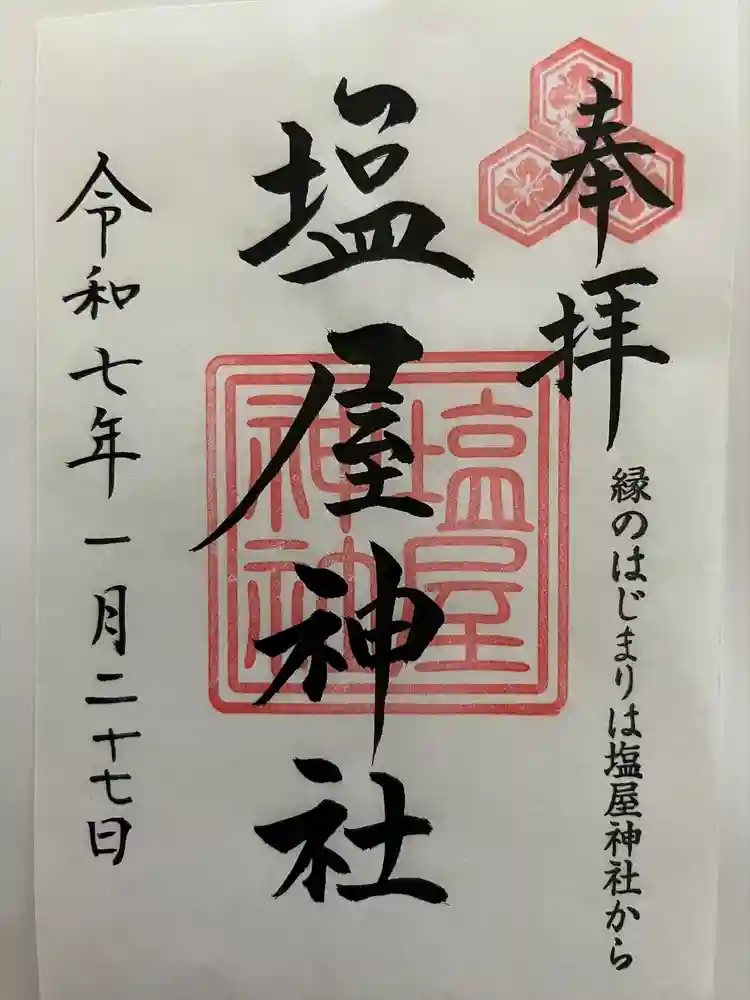 奉拝
縁のはじまりは塩屋神社から
塩屋神社
塩屋
神社
令和七年一月二十七日